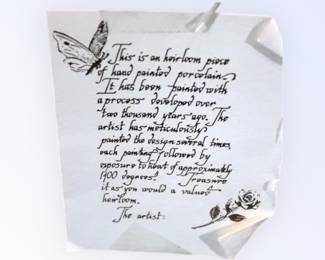 This is an heirloom piece
of hand painted porcelain.
It has been painted with
a process developed over
two thousand years ago. The
artist has meticulously
painted the design several times,
each painting followed by
exposure to heat of approximately
1400 degrees. Treasure
it as you would a valued
heirloom.
The artist: